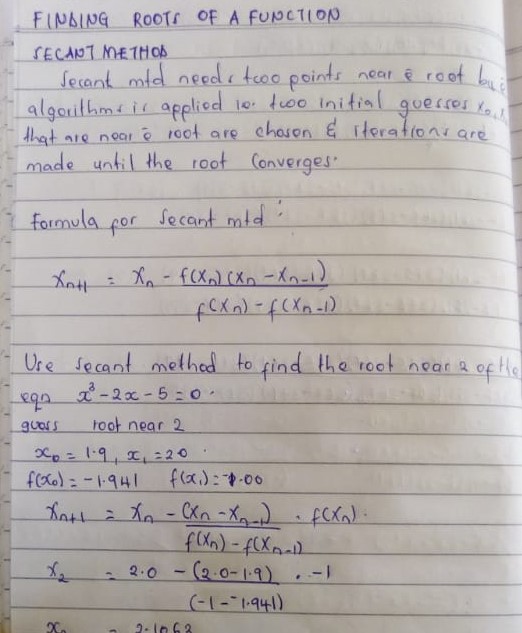 FINDING ROOTS OF A FUNCTION
SECANT METHOD
Secant mtd needs two points near ē root
algorithms is applied ie. two initial guesses x₀,
that are near ē root are chosen & iterations are
made until the root converges.
Formula for Secant mtd :
xₙ₊₁ = xₙ - f(xₙ)(xₙ - xₙ₋₁)
f(xₙ) - f(xₙ₋₁)
Use secant method to find the root near 2 of the
eqn x³ - 2x - 5 = 0.
guess root near 2
x₀ = 1.9, x₁ = 2.0.
f(x₀) = -1.941 f(x₁) = -1.00
xₙ₊₁ = xₙ - (xₙ - xₙ₋₁) . f(xₙ).
f(xₙ) - f(xₙ₋₁)
x₂ = 2.0 - (2.0-1.9) . -1
(-1 - -1.941)
= 2.1063